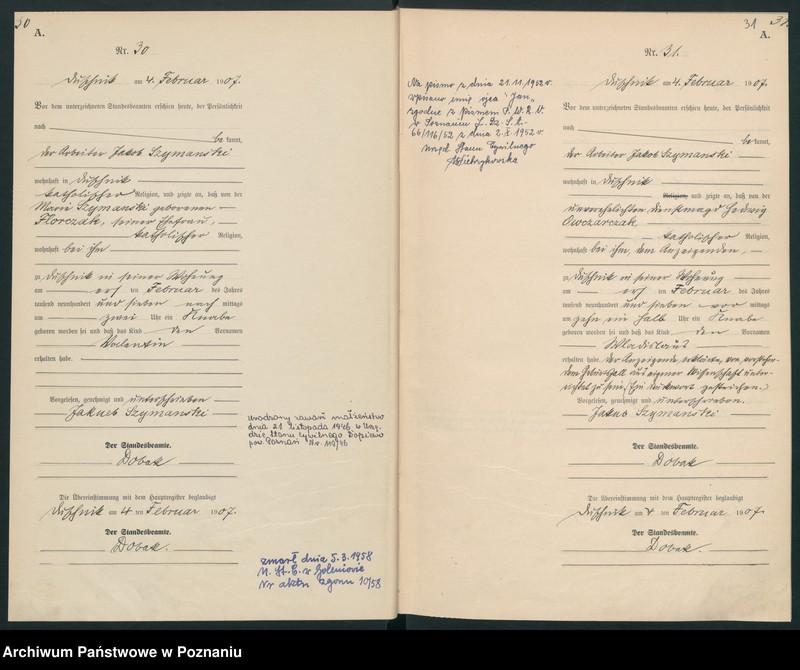 30
A.
Nr. 30
Duschnik am 4. Februar 1907.
Vor dem unterzeichneten Standesbeamten erschien heute, der Persönlichkeit
nach
be kannt,
der Arbeiter Jakob Szymanski
wohnhaft in Duschnik
katholischer Religion, und zeigte an, daß von der
Marie Szymanski geborenen
Florczak, seiner Ehefrau,
katholischer Religion,
wohnhaft bei ihm
zu Duschnik in seiner Wohnung
am ten Februar des Jahres
tausend neunhundert und sieben nach mittags
um zwei Uhr ein Knabe
geboren worden sei und daß das Kind den Vornamen
Valentin
erhalten habe.
Vorgelesen, genehmigt und unterschrieben
Jakueb Szymanski
Der Standesbeamte.
Dobak
Die Übereinstimmung mit dem Hauptregister beglaubigt
Duschnik am 4 ten Februar 1907.
Der Standesbeamte.
Dobak.
urodzony zawarł małżeństwo
dnia 21 listopada 1946 w Urzę-
dzie Stanu Cywilnego
pow. Poznań Nr.
zmarł dnia 5.3.1958
U. St. C. w Goleniowie
Nr aktu zgonu 10/58
31
A.
Nr. 31.
Na pismo z dnia 21.11.1952 r.
wpisano imię ojca "Jan"
zgodnie z pismem P. W. R. N.
w Poznaniu
66/116/52 z dnia 2.X.1952 r.
Urząd Stanu Cywilnego
Duschnik am 4. Februar 1907.
Vor dem unterzeichneten Standesbeamten erschien heute, der Persönlichkeit
nach
be kannt,
der Arbeiter Jakob Szymanski
wohnhaft in Duschnik
Religion, und zeigte an, daß von der
unverehelichten Dienstmagd Hedwig
Owczarczak
katholischer Religion,
wohnhaft bei ihm, dem Anzeigenden,
zu Duschnik in seiner Wohnung
am ten Februar des Jahres
tausend neunhundert und sieben vor mittags
um zehn ein halb Uhr ein Knabe
geboren worden sei und daß das Kind den Vornamen
Wladislaus
erhalten habe. Der Anzeigende erklärte, von vorstehen-
dem Geburtsfall aus eigener Wissenschaft unter-
richtet zu sein. (Ein Druckwort gestrichen.)
Vorgelesen, genehmigt und unterschrieben.
Jakub Szymanski
Der Standesbeamte.
Dobak
Die Übereinstimmung mit dem Hauptregister beglaubigt
Duschnik am 4 ten Februar 1907.
Der Standesbeamte.
Dobak.
Archiwum Państwowe w Poznaniu